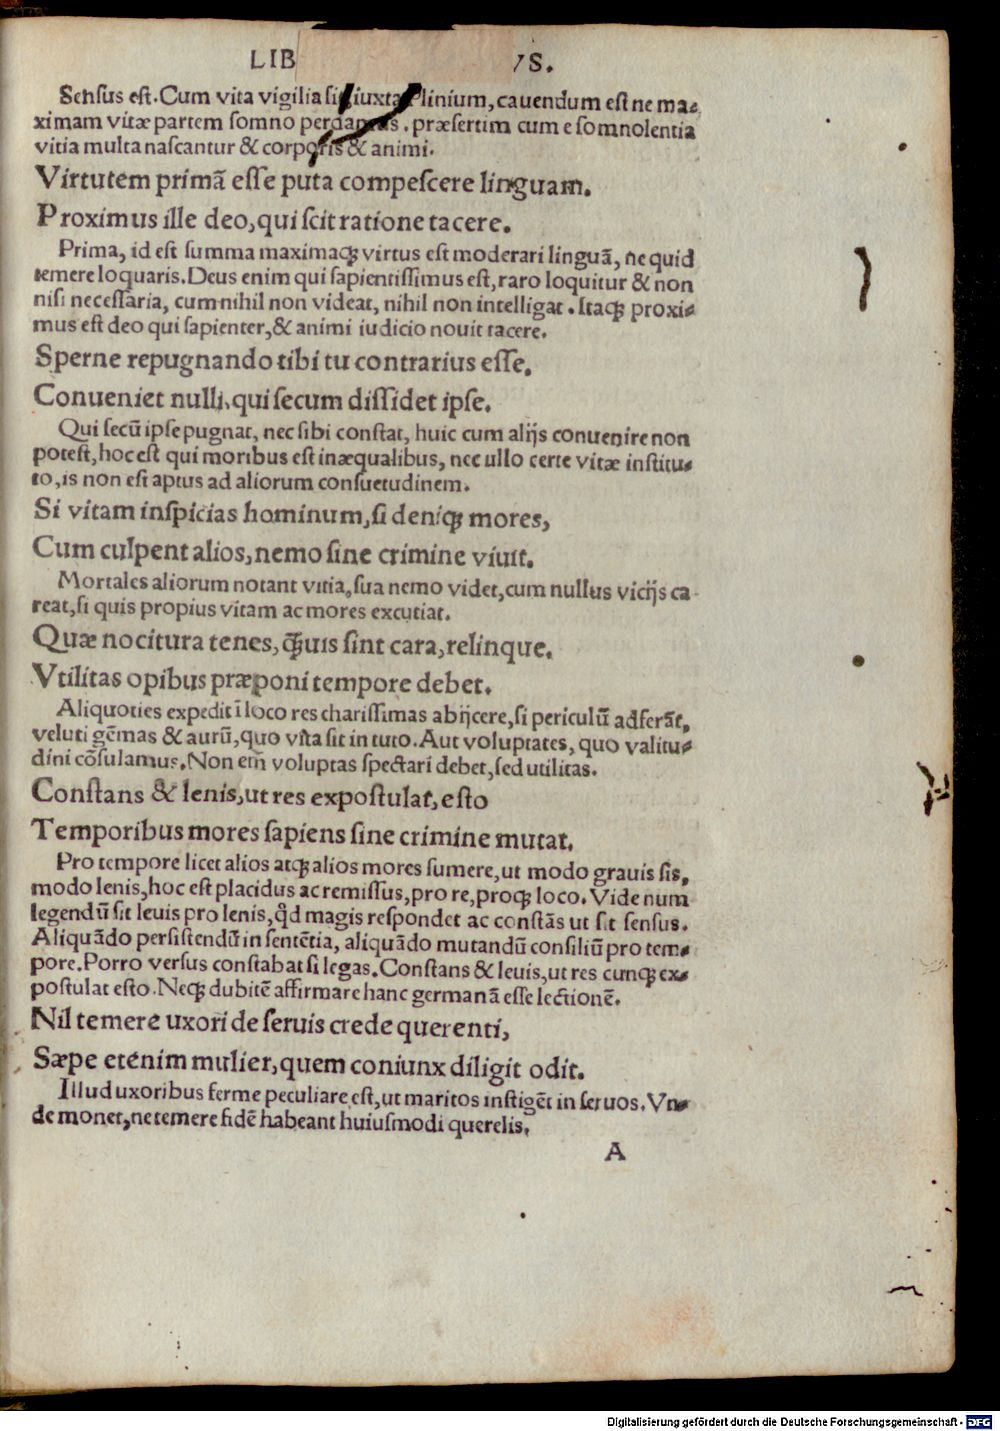 LIB VS.
Senſus eſt. Cum vita vigilia ſit iuxta Plinium, cauendum eſt ne ma⸗
ximam vitæ partem ſomno perdamus. præſertim cum e ſomnolentia
vitia multa naſcantur & corporis & animi.
Virtutem primā eſſe puta compeſcere linguam.
Proximus ille deo, qui ſcit ratione tacere.
Prima, id eſt ſumma maximaqꝫ virtus eſt moderari linguā, ne quid
temere loquaris. Deus enim qui ſapientiſſimus eſt, raro loquitur & non
niſi neceſſaria, cum nihil non videat, nihil non intelligat. Itaqꝫ proxi⸗
mus eſt deo qui ſapienter, & animi iudicio nouit tacere.
Sperne repugnando tibi tu contrarius eſſe.
Conueniet nulli, qui ſecum diſſidet ipſe.
Qui ſecū ipſe pugnat, nec ſibi conſtat, huic cum alijs conuenire non
poteſt, hoc eſt qui moribus eſt inæqualibus, nec ullo certe vitæ inſtitu⸗
to, is non eſt aptus ad aliorum conſuetudinem.
Si vitam inſpicias hominum, ſi deniqꝫ mores,
Cum culpent alios, nemo ſine crimine viuit.
Mortales aliorum notant vitia, ſua nemo videt, cum nullus vicijs ca⸗
reat, ſi quis propius vitam ac mores excutiat.
Quæ nocitura tenes, q̄ꝫuis ſint cara, relinque.
Vtilitas opibus præponi tempore debet.
Aliquoties expedit ī loco res chariſſimas abijcere, ſi periculū adferāt,
veluti gēmas & aurū, quo vita ſit in tuto. Aut voluptates, quo valitu⸗
dini cōſulamus. Non em̄ voluptas ſpectari debet, ſed utilitas.
Conſtans & lenis, ut res expoſtulat, eſto
Temporibus mores ſapiens ſine crimine mutat.
Pro tempore licet alios atqꝫ alios mores ſumere, ut modo grauis ſis,
modo lenis, hoc eſt placidus ac remiſſus, pro re, proqꝫ loco. Vide num
legendū ſit leuis pro lenis, qd̄ magis reſpondet ac conſtās ut ſit ſenſus.
Aliquādo perſiſtendū in ſentētia, aliquādo mutandū conſiliū pro tem⸗
pore. Porro verſus conſtabat ſi legas. Conſtans & leuis, ut res cunqꝫ ex⸗
poſtulat eſto. Neqꝫ dubitē affirmare hanc germanā eſſe lectionē.
Nil temere uxori de ſeruis crede querenti,
Sæpe etenim mulier, quem coniunx diligit odit.
Illud uxoribus ferme peculiare eſt, ut maritos inſtigēt in ſeruos. Vn⸗
de monet, ne temere fidē habeant huiuſmodi querelis.
A
Digitalisierung gefördert durch die Deutsche Forschungsgemeinschaft - DFG